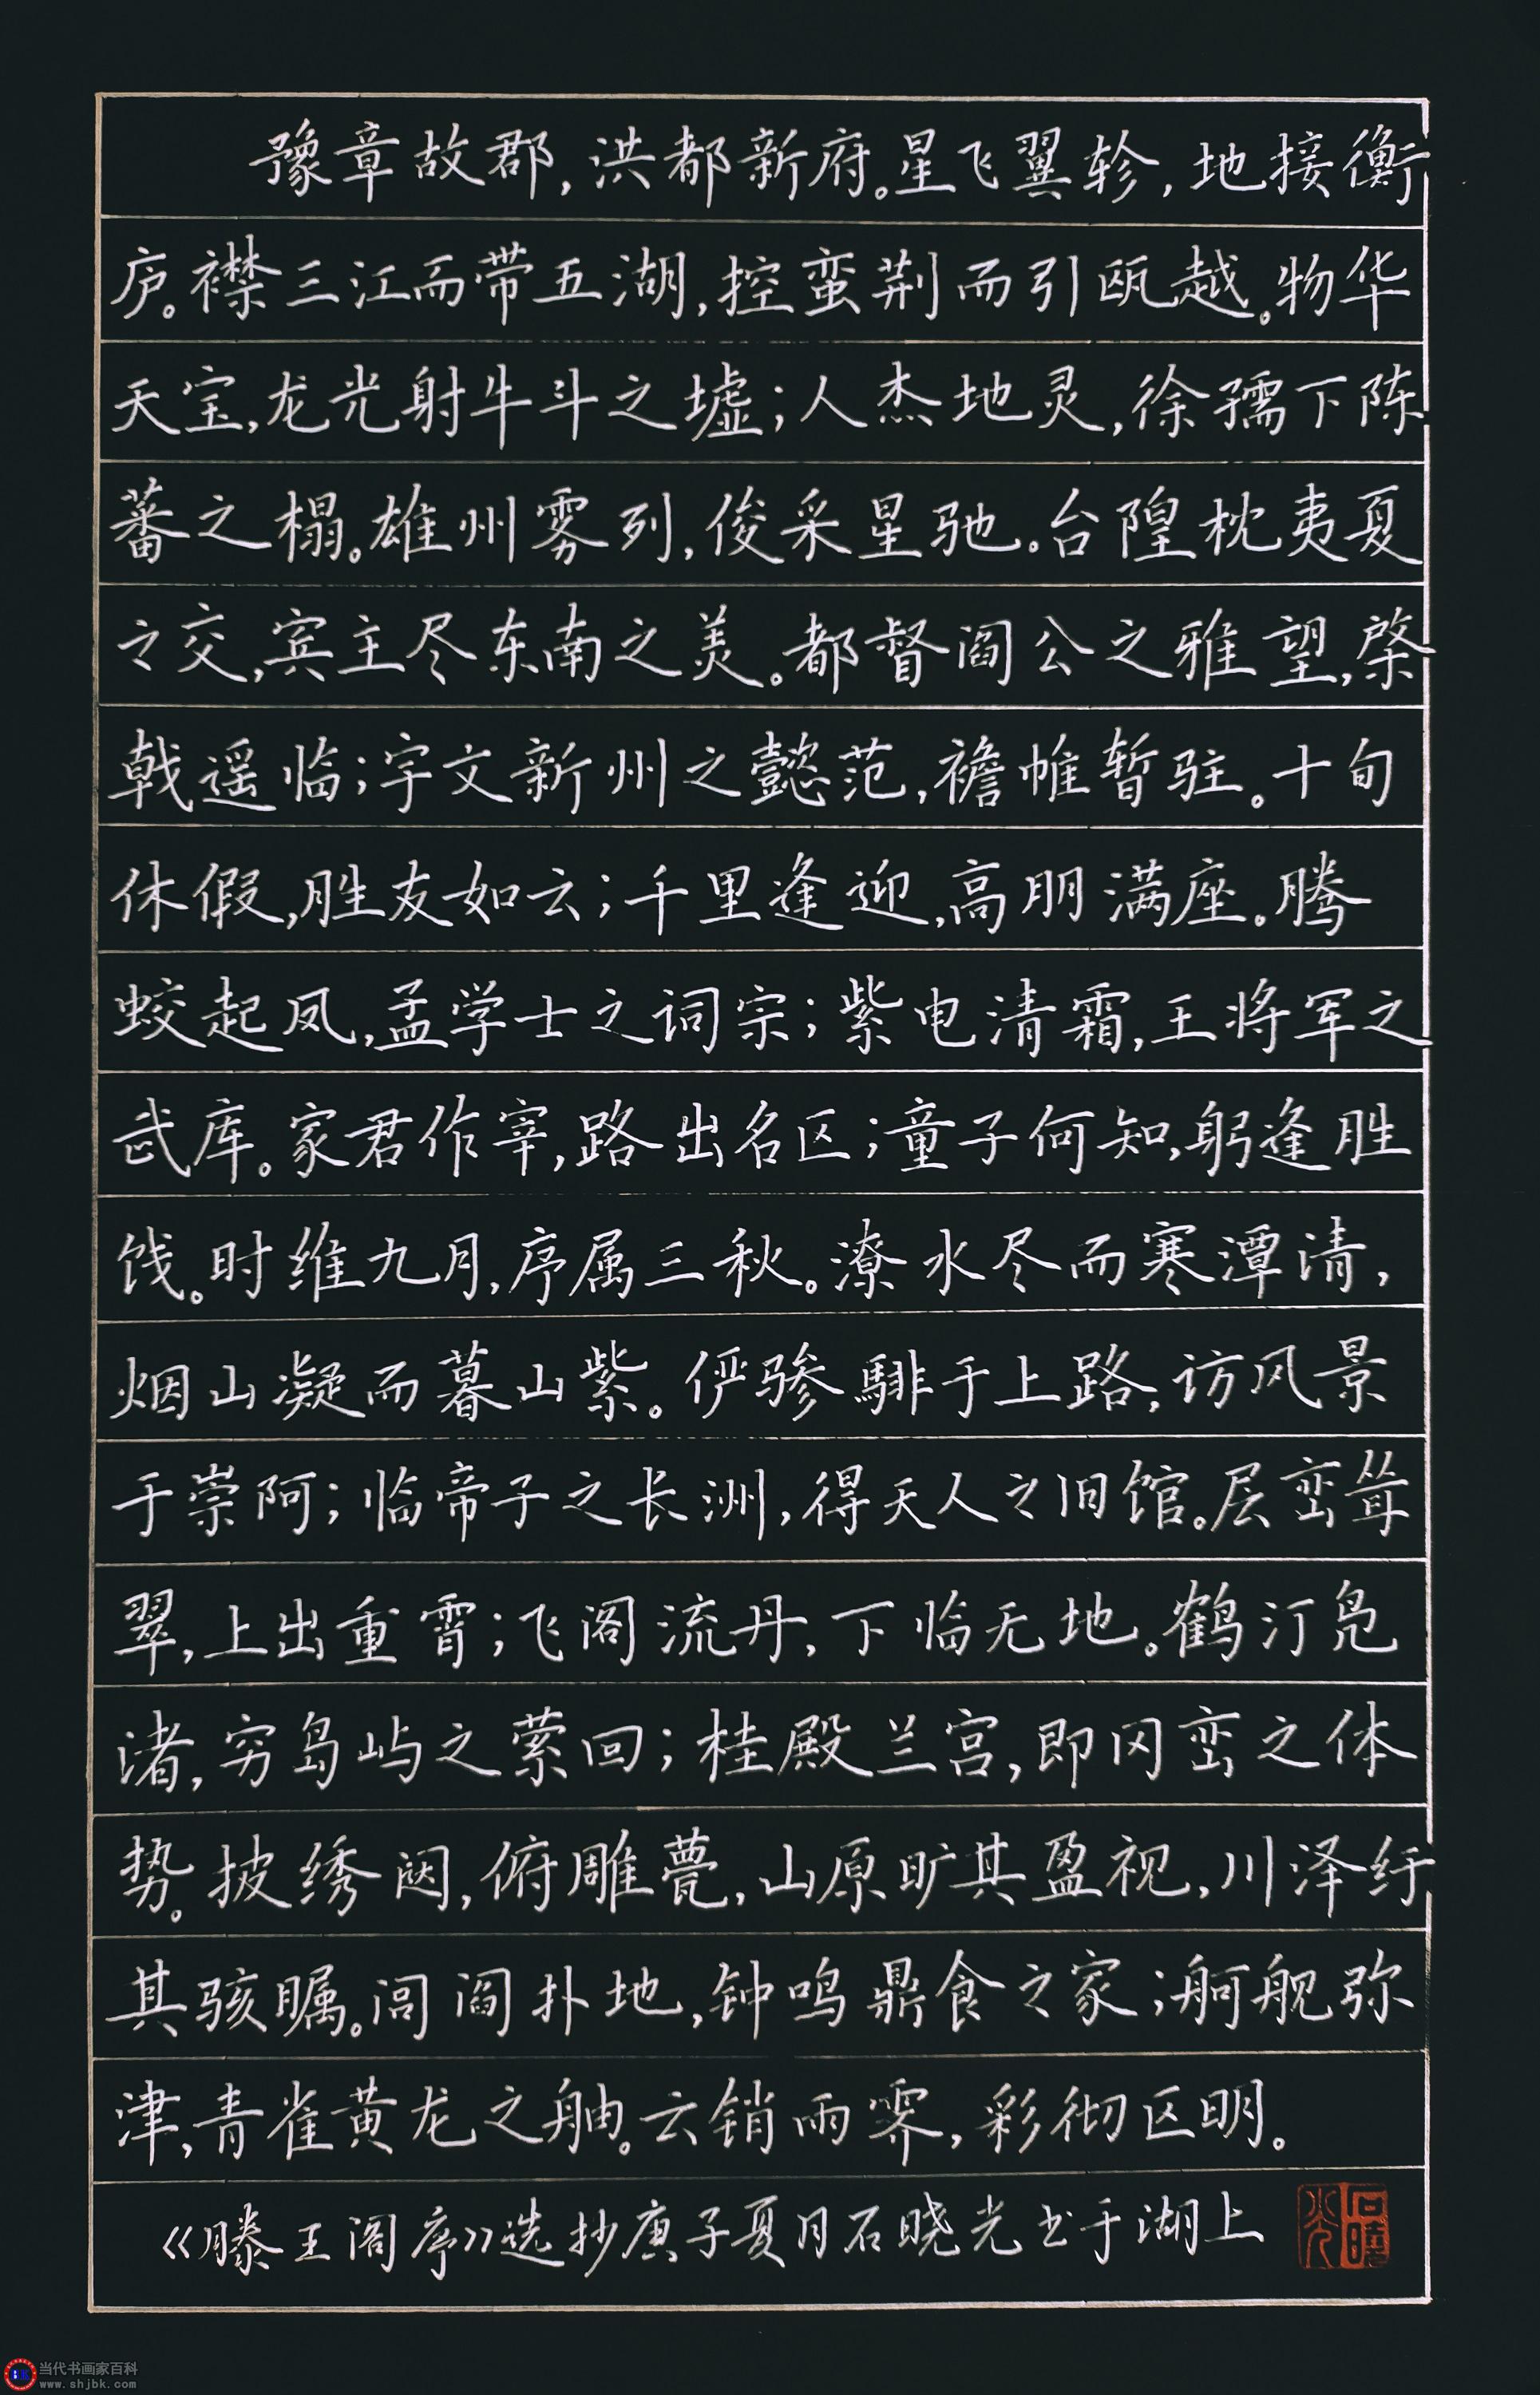 豫章故郡，洪都新府。星飞翼轸，地接衡
庐。襟三江而带五湖，控蛮荆而引瓯越。物华
天宝，龙光射牛斗之墟；人杰地灵，徐孺下陈
蕃之榻。雄州雾列，俊采星驰。台隍枕夷夏
之交，宾主尽东南之美。都督阎公之雅望，棨
戟遥临；宇文新州之懿范，襜帷暂驻。十旬
休假，胜友如云；千里逢迎，高朋满座。腾
蛟起凤，孟学士之词宗；紫电清霜，王将军之
武库。家君作宰，路出名区；童子何知，躬逢胜
饯。时维九月，序属三秋。潦水尽而寒潭清，
烟山凝而暮山紫。俨骖騑于上路，访风景
于崇阿；临帝子之长洲，得天人之旧馆。层峦耸
翠，上出重霄；飞阁流丹，下临无地。鹤汀凫
渚，穷岛屿之萦回；桂殿兰宫，即冈峦之体
势。披绣闼，俯雕甍，山原旷其盈视，川泽纡
其骇瞩。闾阎扑地，钟鸣鼎食之家；舸舰弥
津，青雀黄龙之舳。云销雨霁，彩彻区明。
《滕王阁序》选抄庚子夏月石晓光书于湖上
石晓光
当代书画家百科
www.shjbk.com